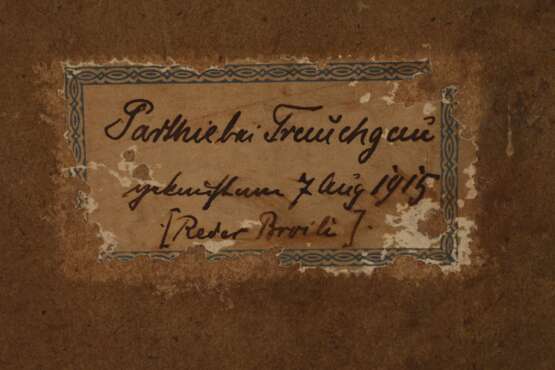 Parthie bei Trauchgau
gekauft am 7 Aug 1915
[Reder Broili].